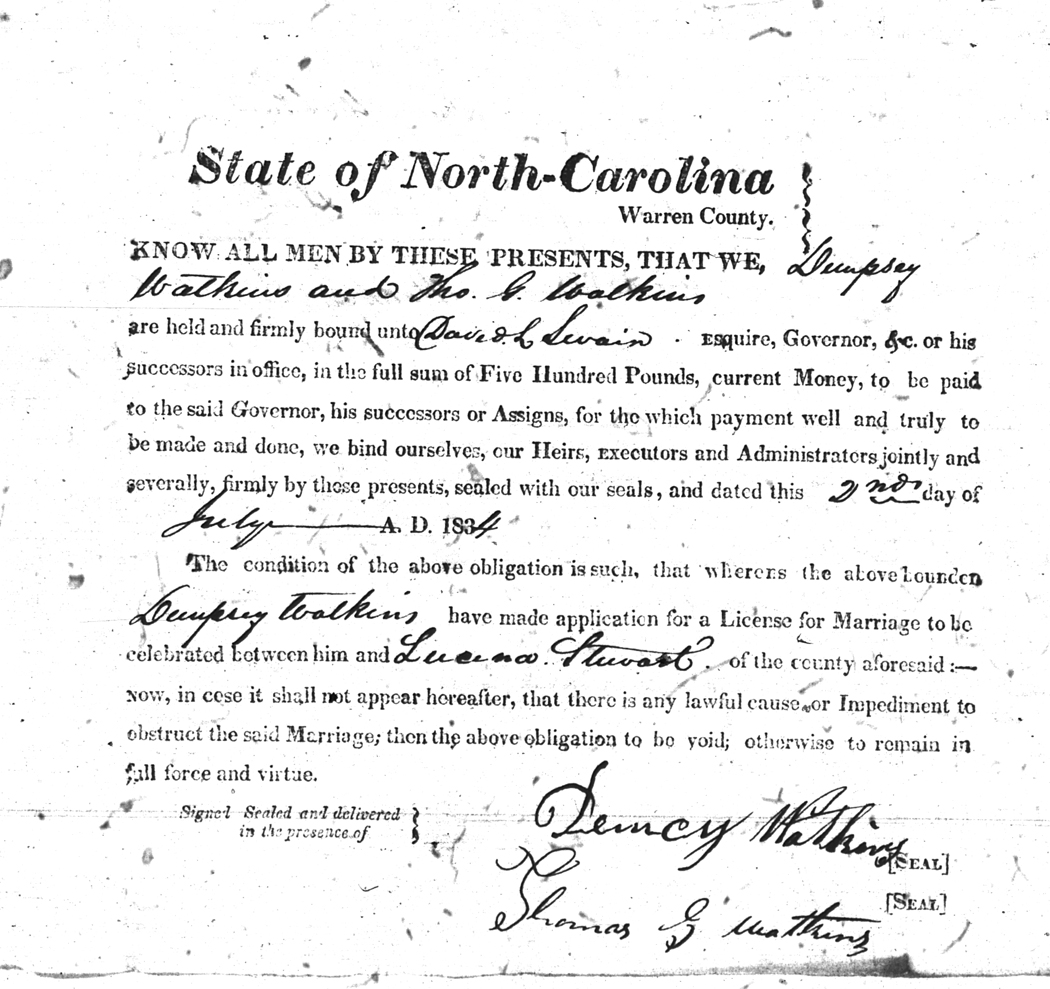 State of North-Carolina
Warren County.
KNOW ALL MEN BY THESE PRESENTS, THAT WE, Dempsey
Watkins and Tho. G. Watkins
are held and firmly bound unto David L Swain . ESquire, Governor, &c. or his
successors in office, in the full sum of Five Hundred Pounds, current Money, to be paid
to the said Governor, his successors or Assigns, for the which payment well and truly to
be made and done, we bind ourselves, our Heirs, EXecutors and Administrators jointly and
severally, firmly by these presents, sealed with our seals, and dated this 2nd day of
July A. D. 1834
The condition of the above obligation is such, that whereas the above bounden
Dempsey Watkins have made application for a License for Marriage to be
celebrated between him and Lucena Stewart . of the county aforesaid :—
NOW, in case it shall not appear hereafter, that there is any lawful cause or Impediment to
obstruct the said Marriage, then the above obligation to be void; otherwise to remain in
full force and virtue.
Signed Sealed and delivered
in the presence of
Demcy Watkins
[SEAL]
[SEAL]
Thomas G Watkins